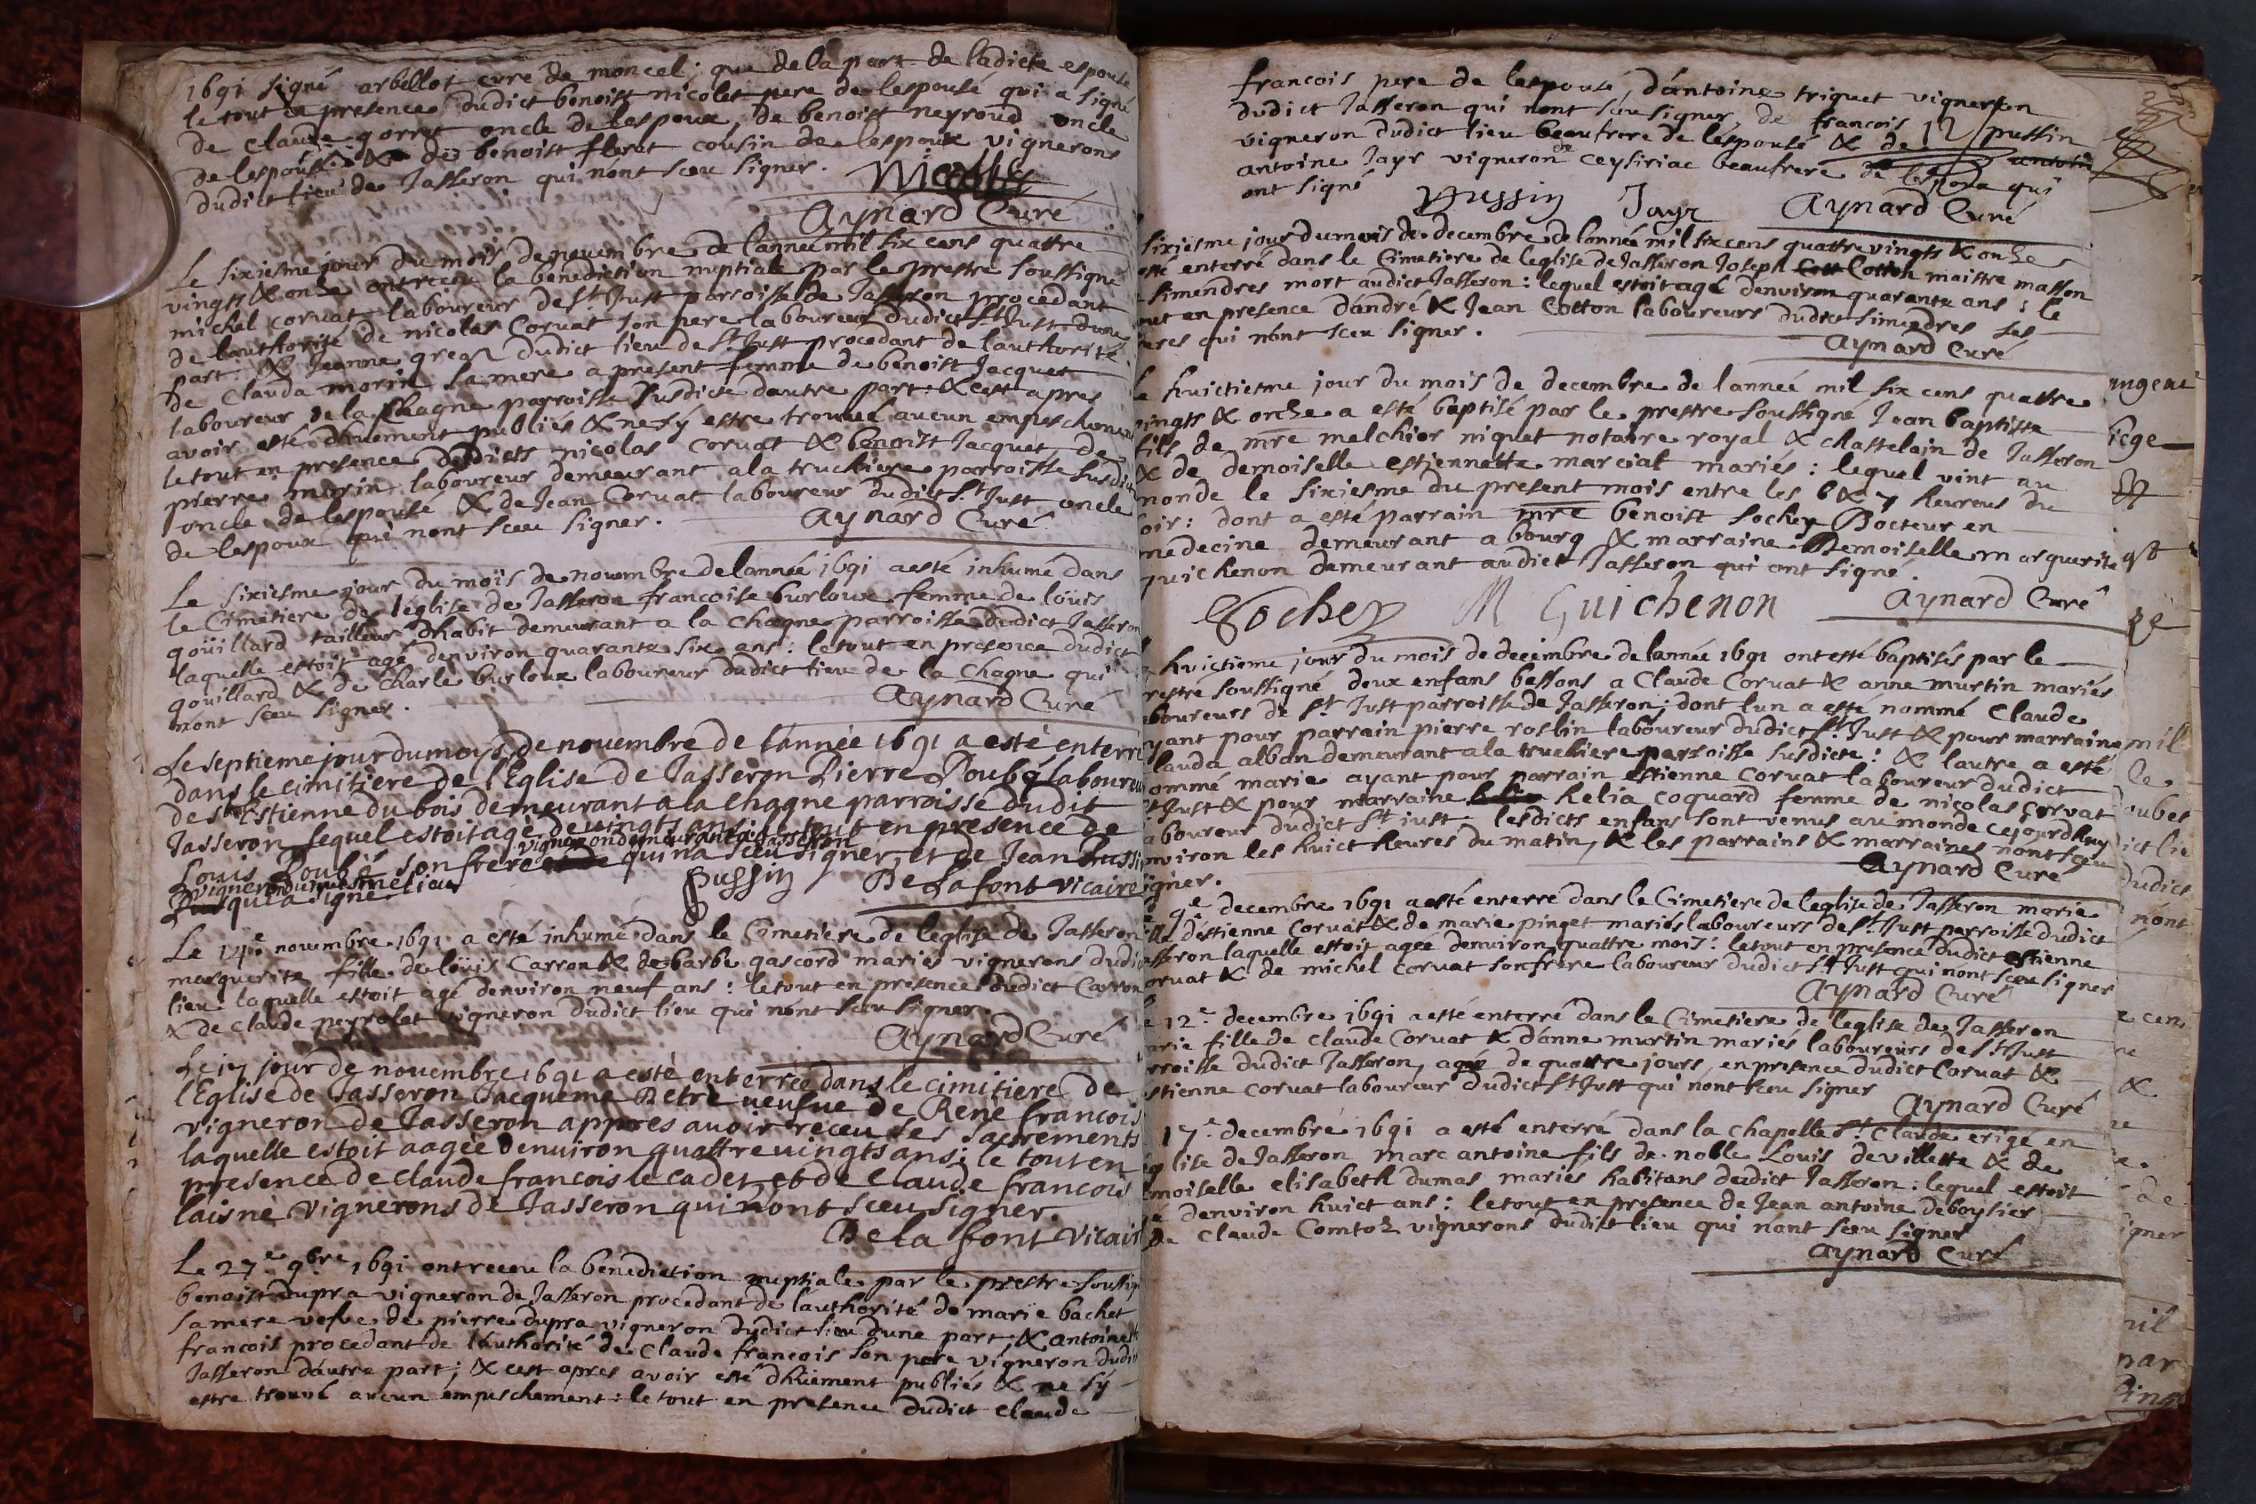 1691 signé arbellot cure de moncel; que de la part de ladicte espouse
le tout en presence dudict benoist nicolet pere de lespousé qui a signé
de claude gorret oncle de lespoux, de benoist neyroud oncle
de lespousé & de benoist floret cousin de lespoux vignerons
dudict lieu de Jasseron qui nont sceu signer.
Aynard Curé
Le sixiesme jour du mois de novembre de lanneé mil six cens quattre
vingts & onze ont receu la benediction nuptiale par le prestre soussigné
michel corvat laboureur de St Just parroisse de Jasseron procedant
de lauthorité de nicolas Corvat son pere laboureur dudict St Just dune
part: & Jeanne dudict lieu de St Just procedant de lauthorité
de Clauda morin sa mere a present femme de benoist Jacquet
laboureur de la chagne parroisse susdicte dautre part: & cest apres
avoir esté dhuement publiés & ne sÿ estre trouvé aucun empeschement
le tout en presence desdicts nicolas corvat & benoist Jacquet de
pierre morin laboureur demeurant a la truchiere parroisse susdict
oncle de lespousé & de Jean Corvat laboureur dudict St Just oncle
de lespoux qui nont sceu signer.
Aynard Curé
Le sixiesme jour du moïs de novembre de lanneé 1691 a esté inhumé dans
le Cimetiere de leglise de Jasseron francoise burloux femme de loüis
goüillard tailleur dhabit demeurant a la chagne parroisse dudict Jasseron
laquelle estoit agé denviron quarante six ans: le tout en presence dudict
goüillard & de Charle burloux laboureur dudict lieu de la Chagne qui
nont sceu signer.
Aynard Curé
Le septieme jour du moys de novembre de l'année 1691 a esté enterré
dans le cimitiere de l'Eglise de Jasseron Pierre Poubé laboureur
de St Estienne du bois demeurant a la chagne parroisse dudit
Jasseron lequel estoit agé de vingts ans: le tout en presence de
vigneron demeurant a Jasseron
Louis Poubé son frere qui na sceu signer, et de Jean Pussin
vigneron du mesme lieu
qui a signé
Pussin De Lafont vicaire
Le 14e novembre 1691 a esté inhumé dans le Cimetiere de leglise de Jasseron
marguerite fille de loüis Carron & de barbe gascord mariés vignerons dudict
lieu laquelle estoit agé denviron neuf ans: le tout en presence dudict Carron
& de Claude peyrolet vigneron dudict lieu qui nont sceu signer.
Aynard Curé
Le 17 jour de novembre 1691 a esté enterrée dans le cimitiere de
l'Eglise de Jasseron Jacqueme Retre veufve de René francois
vigneron de Jasseron appres avoir receu les sacrements
laquelle estoit aagée denviron quattre vingts ans; le tout en
presence de claude francois le cadet et de claude francois
laisné vignerons de Jasseron qui nont sceu signer.
De la font vicaire
Le 27e 9bre 1691 ont receu la benediction nuptiale par le prestre soussigné
benoist dupra vigneron de Jasseron procedant de lauthorité de marïe bachet
sa mere vefve de pierre dupra vigneron dudict lieu dune part, & antoinette
francois procedant de lauthorité de Claude francois son pere vigneron dudict
Jasseron dautre part; & cest apres avoir esté dhüement publiés & ne sÿ
estre trouvé aucun empeschement: le tout en presence dudict claude
francois pere de lespousé, dantoine triquet vigneron
dudict Jasseron qui nont sceu signer, de francois pussin
vigneron dudict lieu beaufrere de lespousé & de
antoine Jayr vigneron de ceysiriac beaufrere de lespoux qui
ont signé
Pussin Jayr Aynard Curé
sixiesme jour du mois de decembre de lanneé mil six cens quattre vingts & onze
esté enterré dans le Cimetiere de leglise de Jasseron Joseph Cotton maistre masson
simandres mort audict Jasseron: lequel estoit agé denviron quarante ans: le
tout en presence dandré & Jean Cotton laboureurs dudict simandres ses
freres qui nont sceu signer.
Aynard Curé
Le huictiesme jour du mois de decembre de lanneé mil six cens quattre
vingts & onze a esté baptisé par le prestre soussigné Jean baptiste
fils de mre melchior niquet notaire royal & chastelain de Jasseron
& de demoiselle estiennette marciat mariés: lequel vint au
monde le sixiesme du present mois entre les 6 & 7 heures du
soir: dont a esté parrain mre benoist sochey Docteur en
medecine demeurant a bourg & marraine Demoiselle marguerite
guichenon demeurant audict Jasseron qui ont signé.
Sochey M Guichenon Aynard Curé
huictieme jour du mois de decembre de lanneé 1691 ont esté baptisés par le
prestre soussigné deux enfans bessons a Claude Corvat & anne murtin mariés
laboureurs de St Just parroisse de Jasseron; dont lun a esté nommé Claude
ayant pour parrain pierre roslin laboureur dudict St Just & pour marraine
Clauda alban demeurant a la truchiere parroisse susdicte: & lautre a esté
nommé marie ayant pour parrain estienne Corvat laboureur dudict
St Just & pour marraine helia coquard femme de nicolas corvat
laboureur dudict St just. lesdicts enfans sont venus au monde cejourdhuy
environ les huict heures du matin, & les parrains & marraines nont sceu
signer.
Aynard Curé
9e decembre 1691 a esté enterré dans le Cimetiere de leglise de Jasseron marie
fille destienne Corvat & de marie pinget mariés laboureurs de St Just parroisse dudict
Jasseron laquelle estoit agee denviron quattre mois: le tout en presence dudict estienne
Corvat & de michel corvat son frere laboureur dudict St Just qui nont sceu signer
Aynard Curé
12e decembre 1691 a esté enterré dans le Cimetiere de leglise de Jasseron
marie fille de Claude Corvat & danne murtin mariés laboureurs de St Just
parroisse dudict Jasseron, agée de quattre jours, en presence dudict Corvat &
estienne corvat laboureur dudict St Just qui nont sceu signer
Aynard Curé
17e decembre 1691 a esté enterré dans la chapelle St Claude erigé en
leglise de Jasseron marc antoine fils de noble Louis devillette & de
demoiselle elisabeth dumas mariés habitans dudict Jasseron: lequel estoit
denviron huict ans: le tout en presence de Jean antoine deboysier
de Claude Comtoz vignerons dudict lieu qui nont sceu signer
Aynard Curé